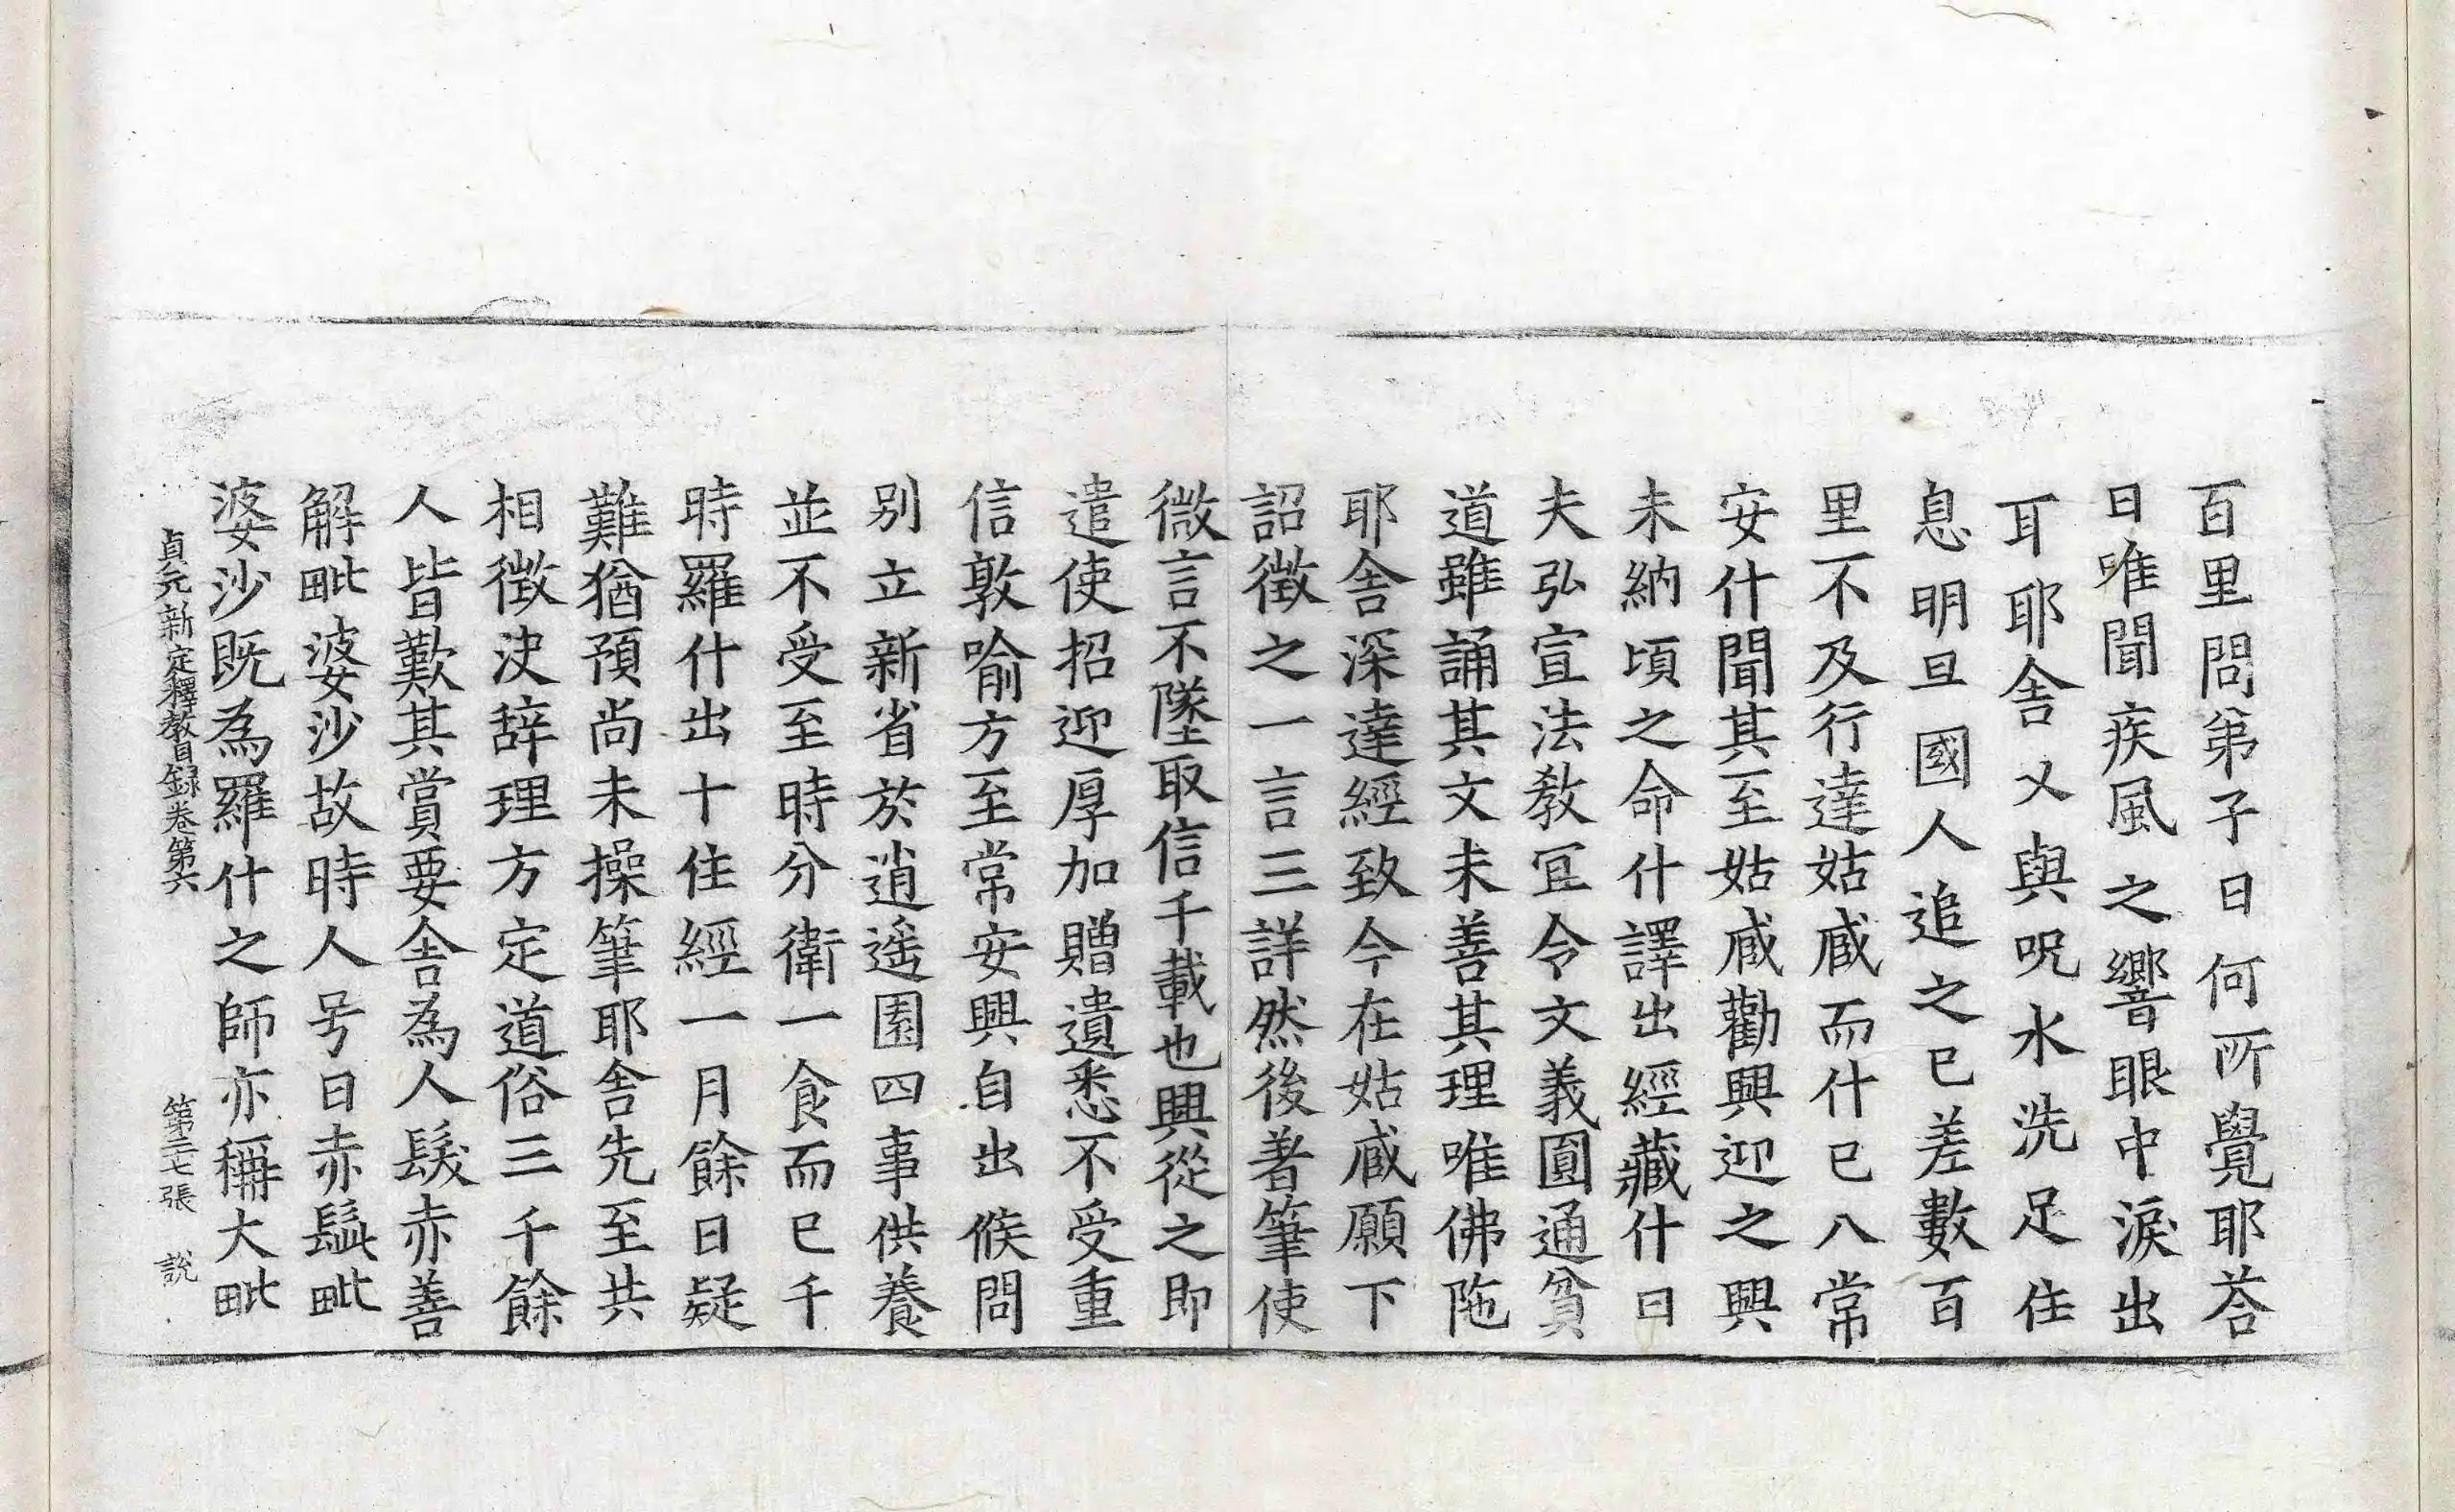 百里問弟子曰何所覺耶荅
曰唯聞疾風之響眼中淚出
耳耶舍乂與呪水洗足住
息明旦國人追之已差數百
里不及行達姑臧而什已入常
安什聞其至姑臧勸興迎之興
未納頃之命什譯出經藏什曰
夫弘宣法教冝令文義圓通貧
道雖誦其文未善其理唯佛陁
耶舍深達經致今在姑臧願下
詔徴之一言三詳然後著筆使
微言不墜取信千載也興從之即
遣使招迎厚加贈遺悉不受重
信敦喻方至常安興自出候問
别立新省於逍遥園四事供養
並不受至時分衛一食而已千
時羅什出十住經一月餘日疑
難猶預尚未操筆耶舍先至共
相徴决辞理方定道俗三千餘
人皆歎其賞要舍為人髭赤善
解毗婆沙故時人号曰赤髭毗
婆沙既為羅什之師亦稱大毗
貞元新定釋教目録卷第六 第二七張 說